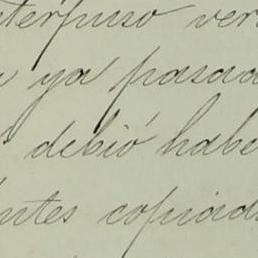 nterpuso ver
ya pasad
debió habe
ntes copiad